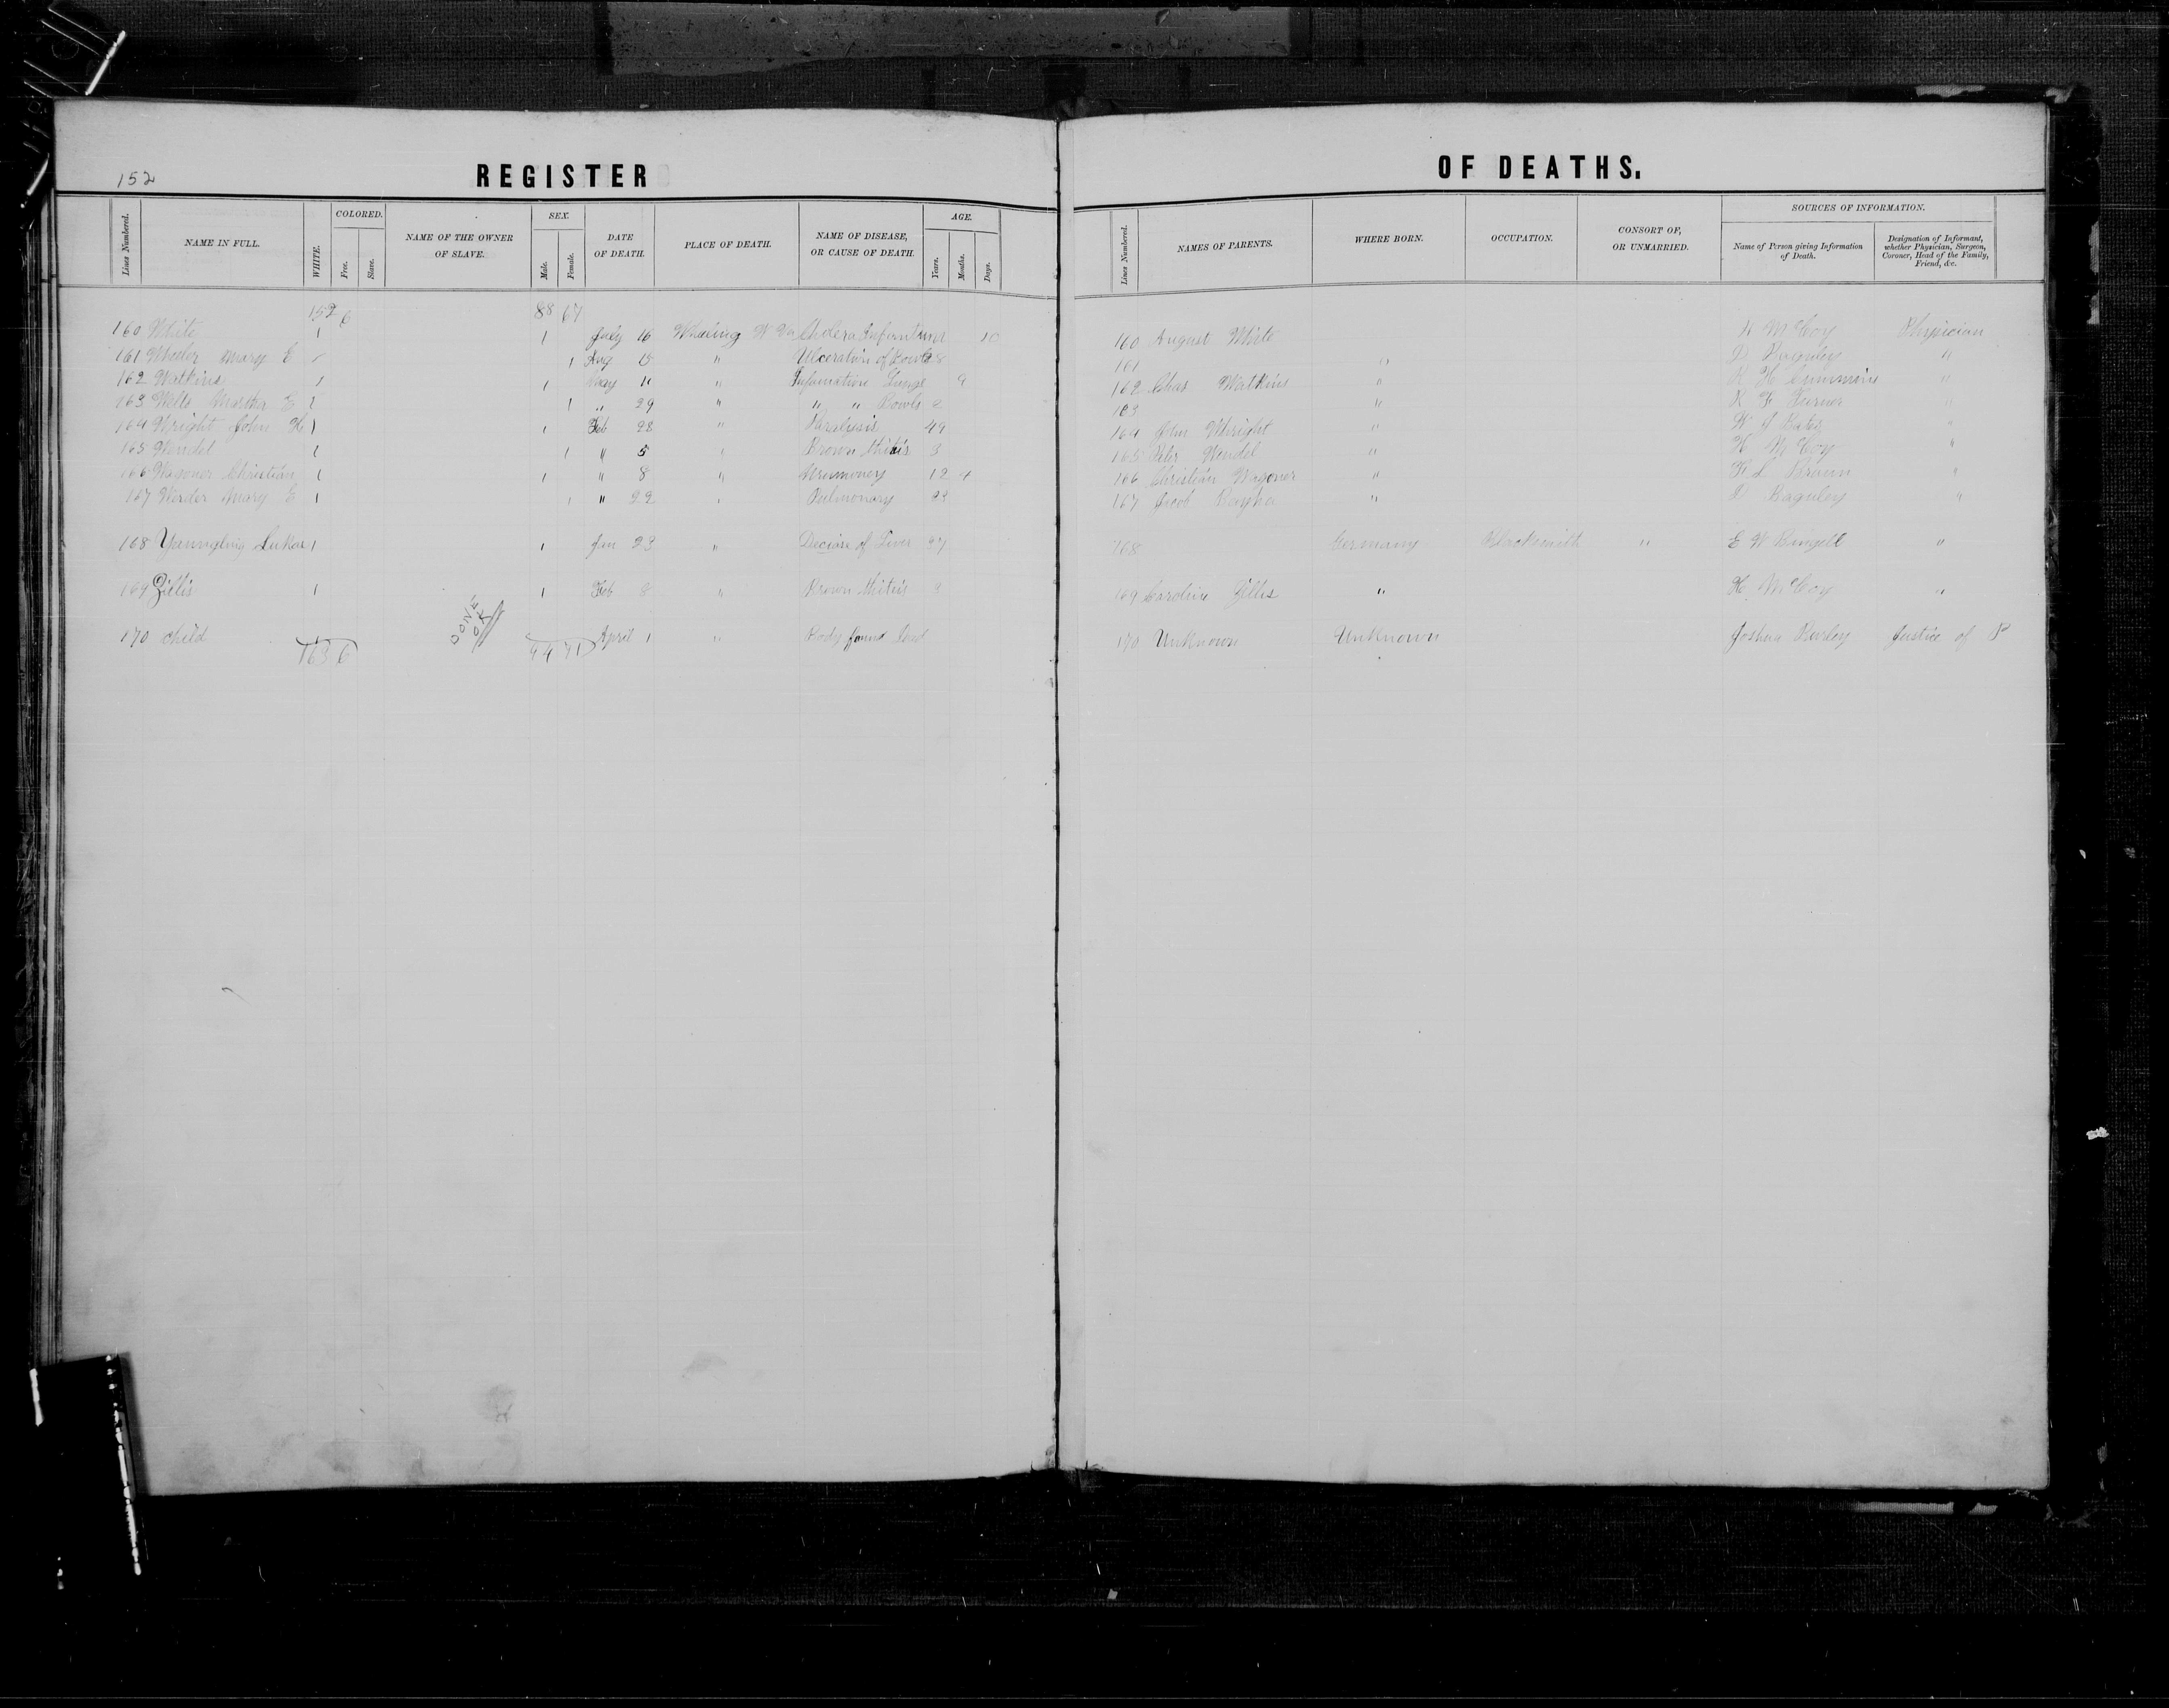 152
REGISTER OF DEATHS.
Lines Numbered. NAME IN FULL. WHITE. COLORED. Free. Slave. NAME OF THE OWNER OF SLAVE. SEX. Male. Female. DATE OF DEATH. PLACE OF DEATH. NAME OF DISEASE, OR CAUSE OF DEATH. AGE. Years. Months. Days. Lines Numbered. NAMES OF PARENTS. WHERE BORN. OCCUPATION. CONSORT OF, OR UNMARRIED. SOURCES OF INFORMATION. Name of Person giving Information of Death. Designation of Informant, whether Physician, Surgeon, Coroner, Head of the Family, Friend, &c.
152 6 88 67
160 White 1 1 July 16 Wheeling W Va Cholera Infantum 10 160 August White McCoy Physician
161 Wheeler Mary E 1 Aug 15 " Ulceration of Bowls 28 161 " Baguley "
162 Watkins 1 1 May 11 " Infamation Lungs 9 162 Chas Watkins " "
163 Wells Martha E 1 1 " 29 " " " Bowls 2 163 " Turner "
164 Wright John H 1 1 Feb 28 " Paralysis 49 164 John Wright " Bates "
165 Wendel 1 1 " 5 " Brown Thitis 3 165 Peter Wendel " H McCoy "
166 Wagoner Christian 1 1 " 8 " 12 4 166 Christian Wagoner " Brown "
167 Werder Mary E 1 1 " 22 " Pulmonary 23 167 Jacob Bayha " Baguley "
168 1 1 Jan 23 " of Liver 37 168 Germany Blacksmith " E W "
169 Zillis 1 1 Feb 8 " Brown Thitis 3 169 Caroline Zillis " H McCoy "
170 child April 1 " Body found 170 Unknown Unknown Joshua Justice of P
DONE
OK
163 6 94 71